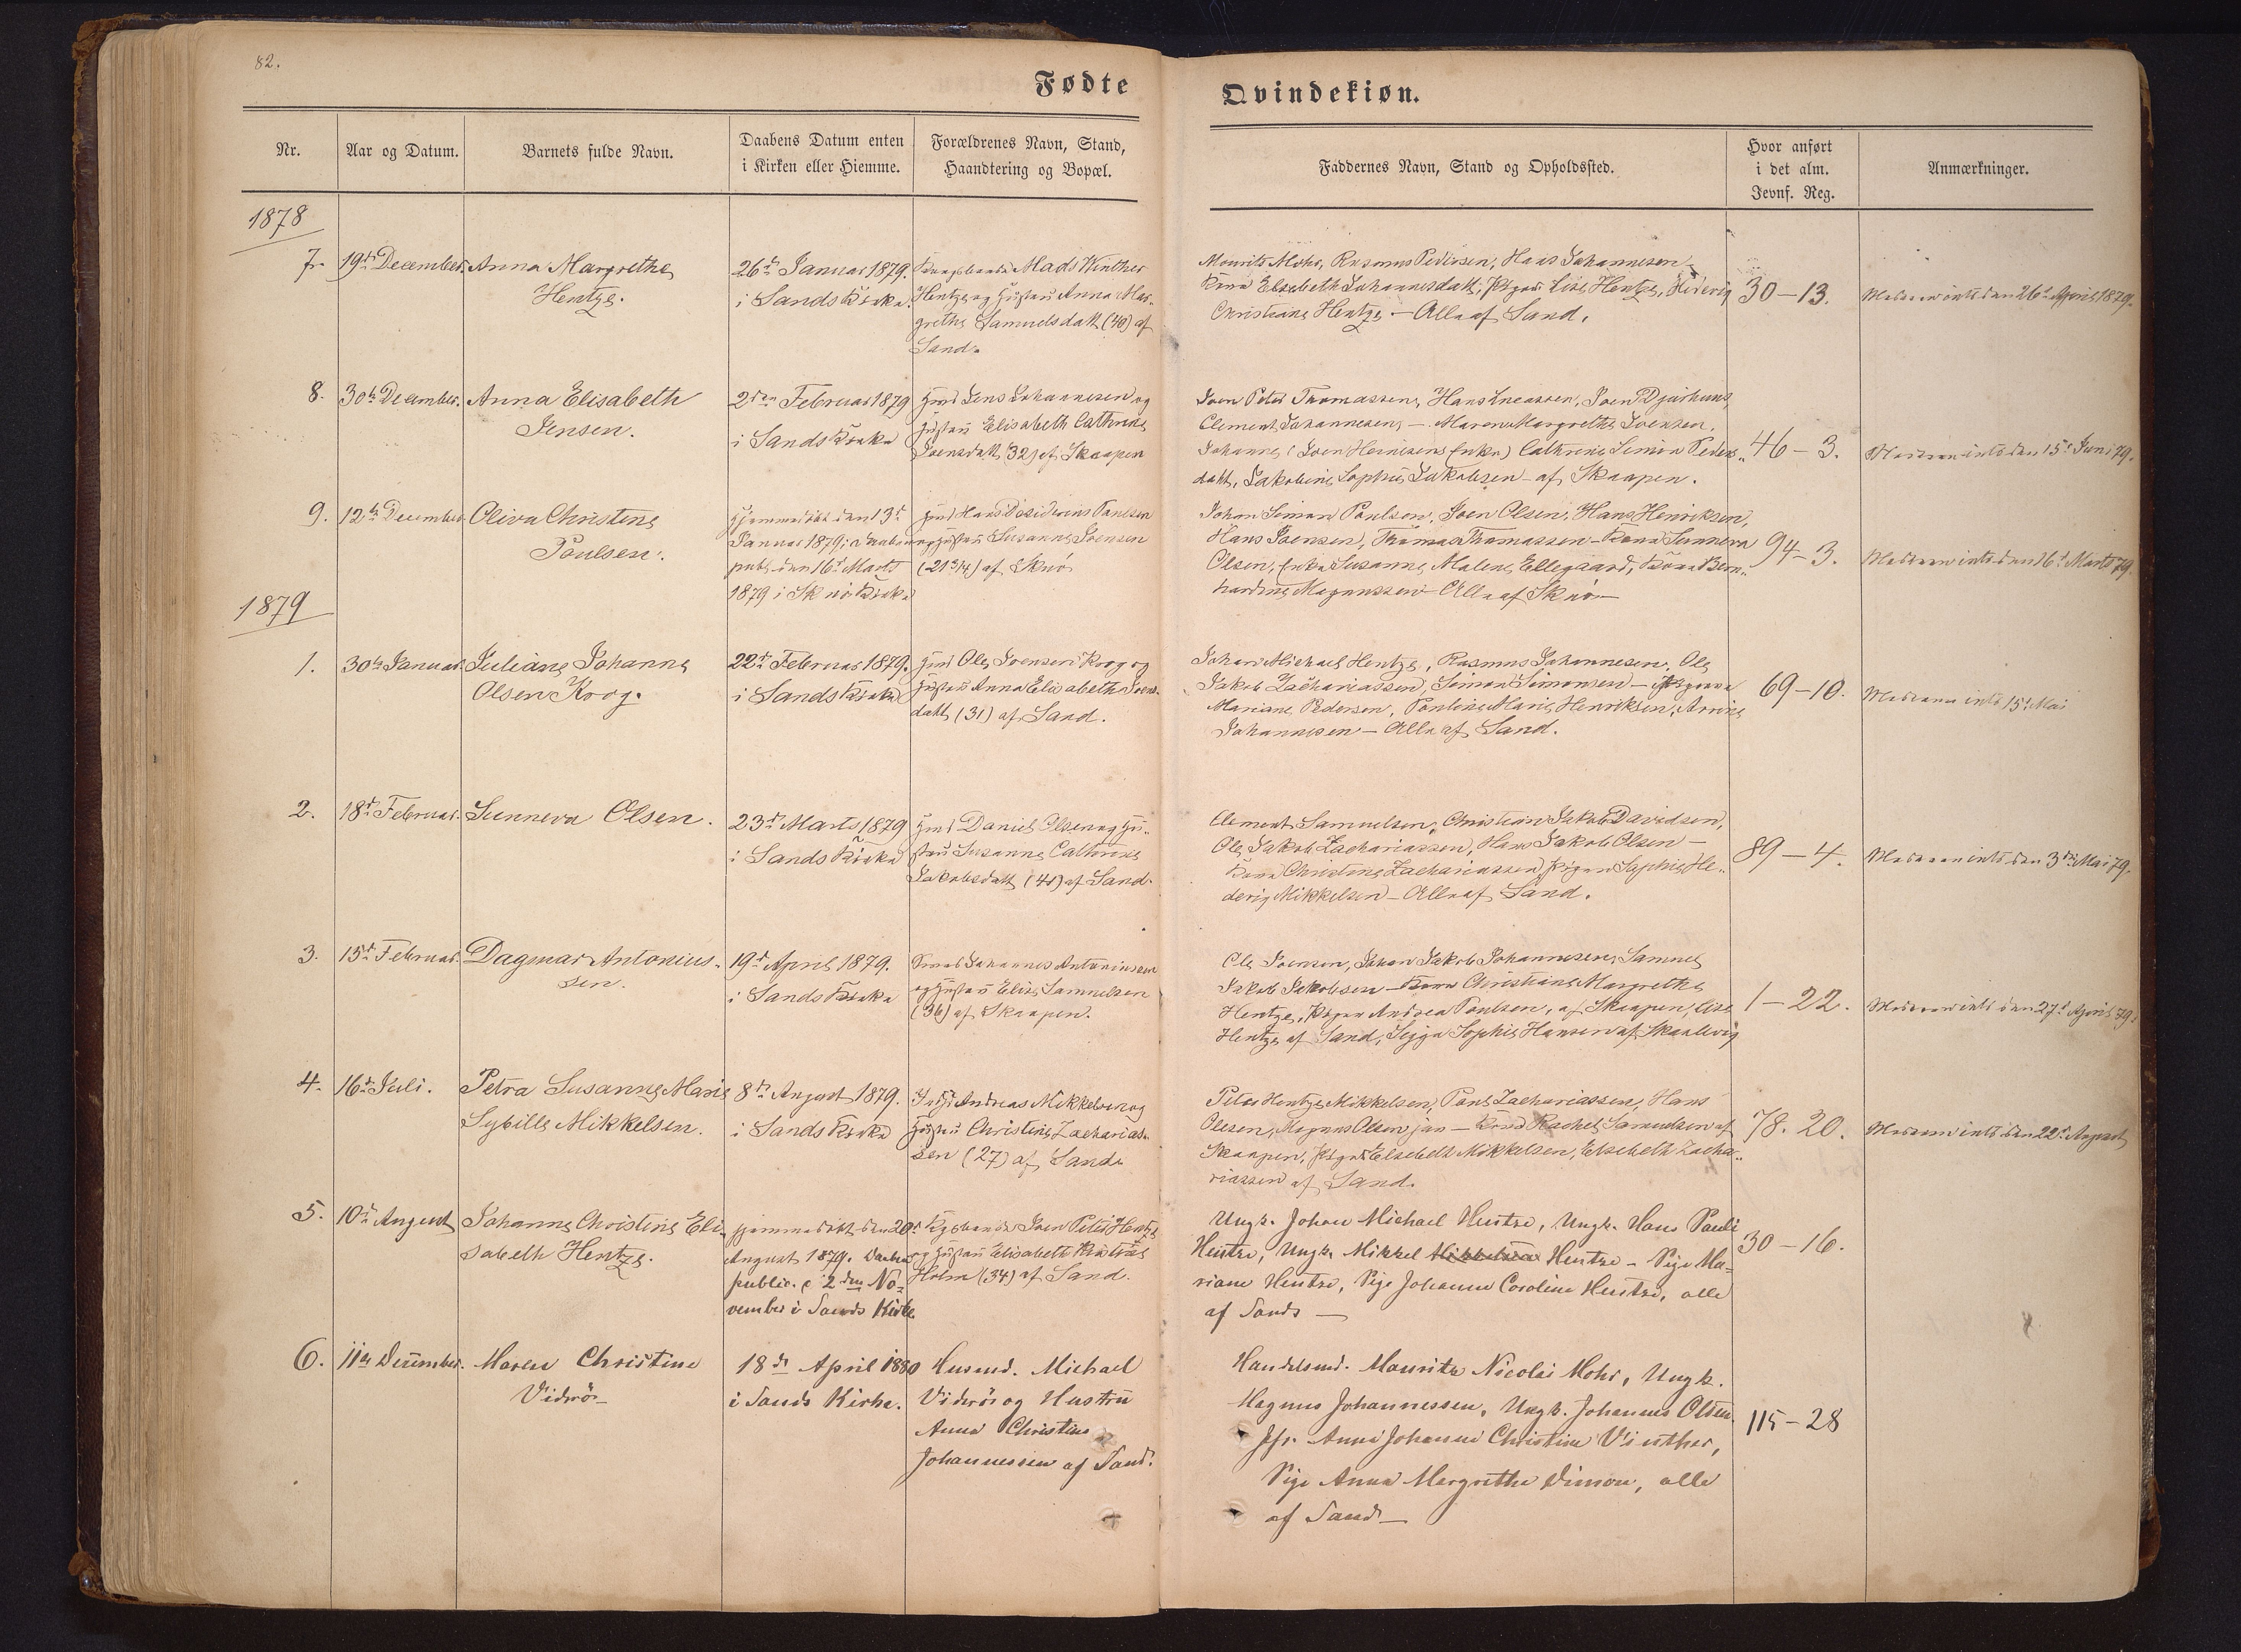 82.
Fødte
Qvindekiøn.
Nr.
Aar og Datum.
Barnets fulde Navn.
Daabens Datum enten
i Kirken eller Hiemme.
Forældrenes Navn, Stand,
Haandtering og Bopæl.
Faddernes Navn, Stand og Opholdssted.
Hvor anført
i det alm.
Jevnf. Reg.
Anmærkninger.
1878
7.
19de December.
Anna Margrethe
Hentze.
26de Januar 1879.
i Sands Kirke.
Mads Winther
Hentze og Hustru Anna Mar-
grethe Samuelsdatt (40) af
Sand.
Mourits Mohr, Rasmus Pedersen, Hans Johannesen
Kone Elsebeth Johannesdatt, Pigen Lise Hentze, Hedevig
Christiane Hentze. — Alle af Sand.
30-13.
den 26de April 1879.
8.
30te December.
Anna Elisabeth
Jensen.
2den Februar 1879
i Sands Kirke
Hmd Jens Johannesen og
Hustru Elisabeth Cathrine
Joensdatt (32) af Skaapen
Joen Peter Thomassen, Hans Joen Djurhuus,
Clement Johannesen, — Maren Margrethe Joensen,
Johanne (Joen Heinesens Enke) Cathrine Simon Peders-
datt, Jakobine Sophie Jakobsen - af Skaapen.
46-3.
den 15de Juni 79.
9.
12te December
Oliva Christine
Poulsen.
Hjemmedøbt den 13de
Januar 1879; Daaben
publ. den 16de Marts
1879 i Skuø Kirke
Hmd Hans Poulsen
og Hustru Susanne Joensen
(21 3/4) af Skuø
Johan Simon Poulsen, Joen Olsen, Hans Henriksen,
Hans Joensen, Thomas Thomassen - Kone Sunneva
Olsen, Enke Susanne Malene Ellegaard, Kone Bern-
hardine Magnussen - Alle af Skuø —
94-3.
den 16de Marts 79.
1879
1.
30te Januar.
Juliane Johanne
Olsen Krog.
22de Februar 1879.
i Sands Kirke
Hmd Ole Joensen Krog og
Hustru Anna Elisabeth Joens-
datt (31) af Sand.
Johan Michael Hentze, Rasmus Johannesen, Ole
Jakob Zachariassen, Simon Simonsen —
Mariane Pedersen, Pouline Marie Henriksen,
Johannesen — Alle af Sand.
69-10.
15de Mai
2.
18de Februar.
Sunneva Olsen.
23de Marts 1879
i Sands Kirke
Hmd Daniel Olsen og Hu-
stru Susanne Cathrine
Jakobsdatt (40) af Sand.
Clement Samuelsen, Christian Jakob Davidsen,
Ole Jakob Zachariassen, Hans Jakob Olsen —
Kone Christine Zachariassen, Pigen Sophie He-
devig Mikkelsen — Alle af Sand.
89-4.
den 3die Mai 79.
3.
15de Februar.
Dagmar Antonius-
sen.
19de April 1879.
i Sands Kirke
Johannes Antoniussen
og Hustru Elise Samuelsen
(36) af Skaapen.
Ole Joensen, Johan Jakob Johannesen, Samuel
Jakob Jakobsen — Kone Christiane Margrethe
Hentze, Pigen Andrea Poulsen, af Skaapen, Lise
Hentze af Sand, Sophie Hansen af Skaalevig
1-22.
den 27de April 79.
4.
16de Juli.
Petra Susanne Marie
Sybille Mikkelsen.
8de August 1879.
i Sands Kirke
Andreas Mikkelsen og
Hustru Christine Zacharias-
sen (27) af Sand.
Peter Hentze Mikkelsen, Poul Zachariassen, Hans
Olesen, Magnus Olsen jun — Kone Rachel Samuelsen af
Skaapen, Pigen Elsebeth Mikkelsen, Elsebeth Zacha-
riassen af Sand.
78. 20.
den 22de August
5.
10de August
Johanne Christine Eli-
sabeth Hentze.
Hjemmedøbt den 20de
August 1879. Daaben
public. 2den No-
vember i Sands Kirke
Joen Peter Hentze
og Hustru Elisabeth
Holm (34) af Sand.
Ungk. Johan Michael Hentze, Ungk. Hans Pauli
Hentze, Ungk. Mikkel Mikkelsen Hentze - Pige Ma-
riane Hentze, Pige Johanne Caroline Hentze, alle
af Sands —
30-16.
6.
11te December.
Maren Christine
Viderø
18de April 1880
i Sands Kirke.
Husmd. Michael
Viderø og Hustru
Anna Christine
Johannessen af Sand.
Handelsmd. Mourits Nicolai Mohr, Ungk.
Magnus Johannessen, Ungk. Johannes Olsen.
Jfr. Anne Johanne Christine Vinther,
Pige Anna Margrethe Dimon, alle
af Sand —
115-28